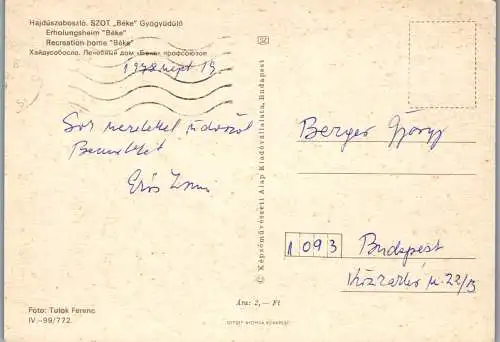 Hajdúszoboszló. SZOT „Béke" Gyógyüdülő
Erholungsheim "Béke"
Recreation home "Béke"
Хайдусобосло. Лечебный дом «Беке» профсоюзов
1978 szept 19.
Sok szeretettel üdvözöl
Benneteket
Erős
Berger György
1093 Budapest
Közraktár u. 22/B
Foto: Tulok Ferenc
IV.-99/772.
Ára: 2,— Ft
© Képzőművészeti Alap Kiadóvállalata, Budapest
OFFSET NYOMDA BUDAPEST